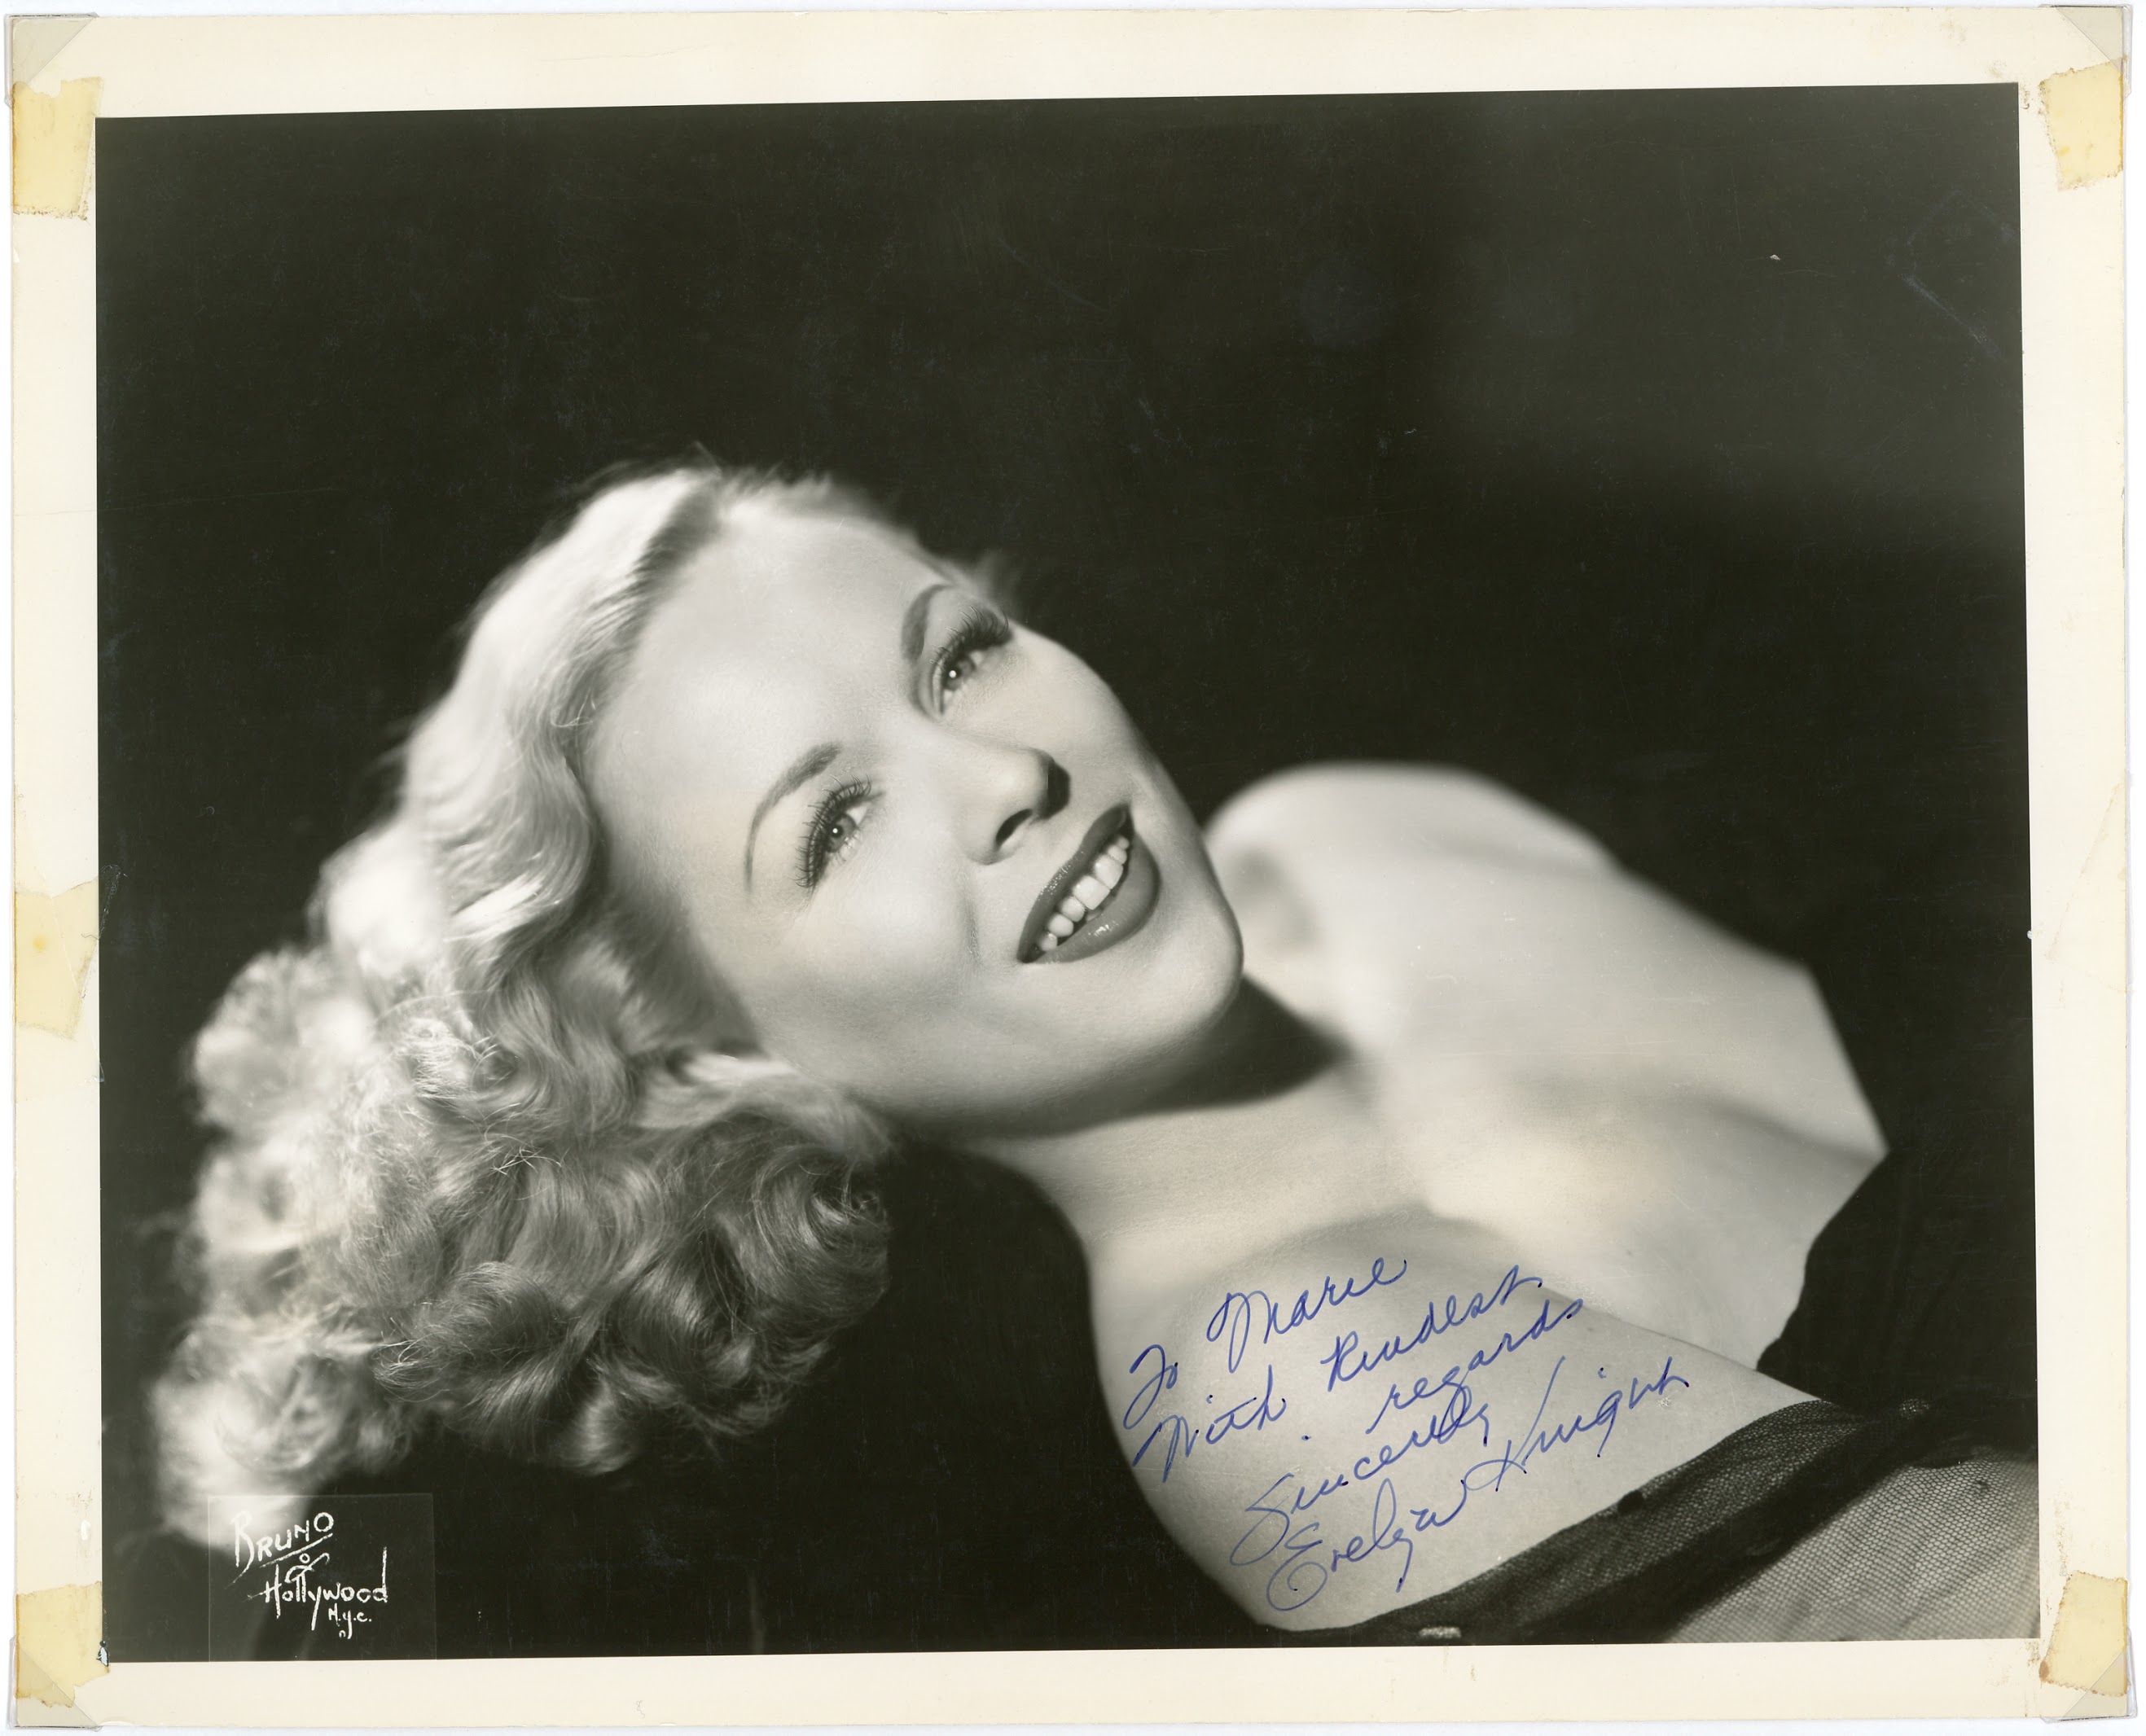 To Marie
With Kindest
regards
Sincerely
Evelyn Knight
BRUNO
of
Hollywood
N.y.c.